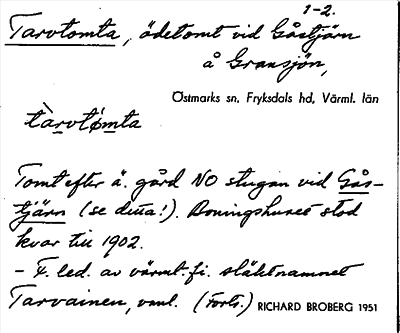 1-2.
Tarvtomta, ödetomt vid Gåstjärn
å Gransjön,
Östmarks sn, Fryksdals hd, Värml. län
tàrvtǿmta
Tomt efter ä. gård NO stugan vid Gås-
tjärn (se detta!). Boningshuset stod
kvar till 1902.
- F. led. av värml.-fi. släktnamnet
Tarvainen, vanl. (Forts.) RICHARD BROBERG 1951